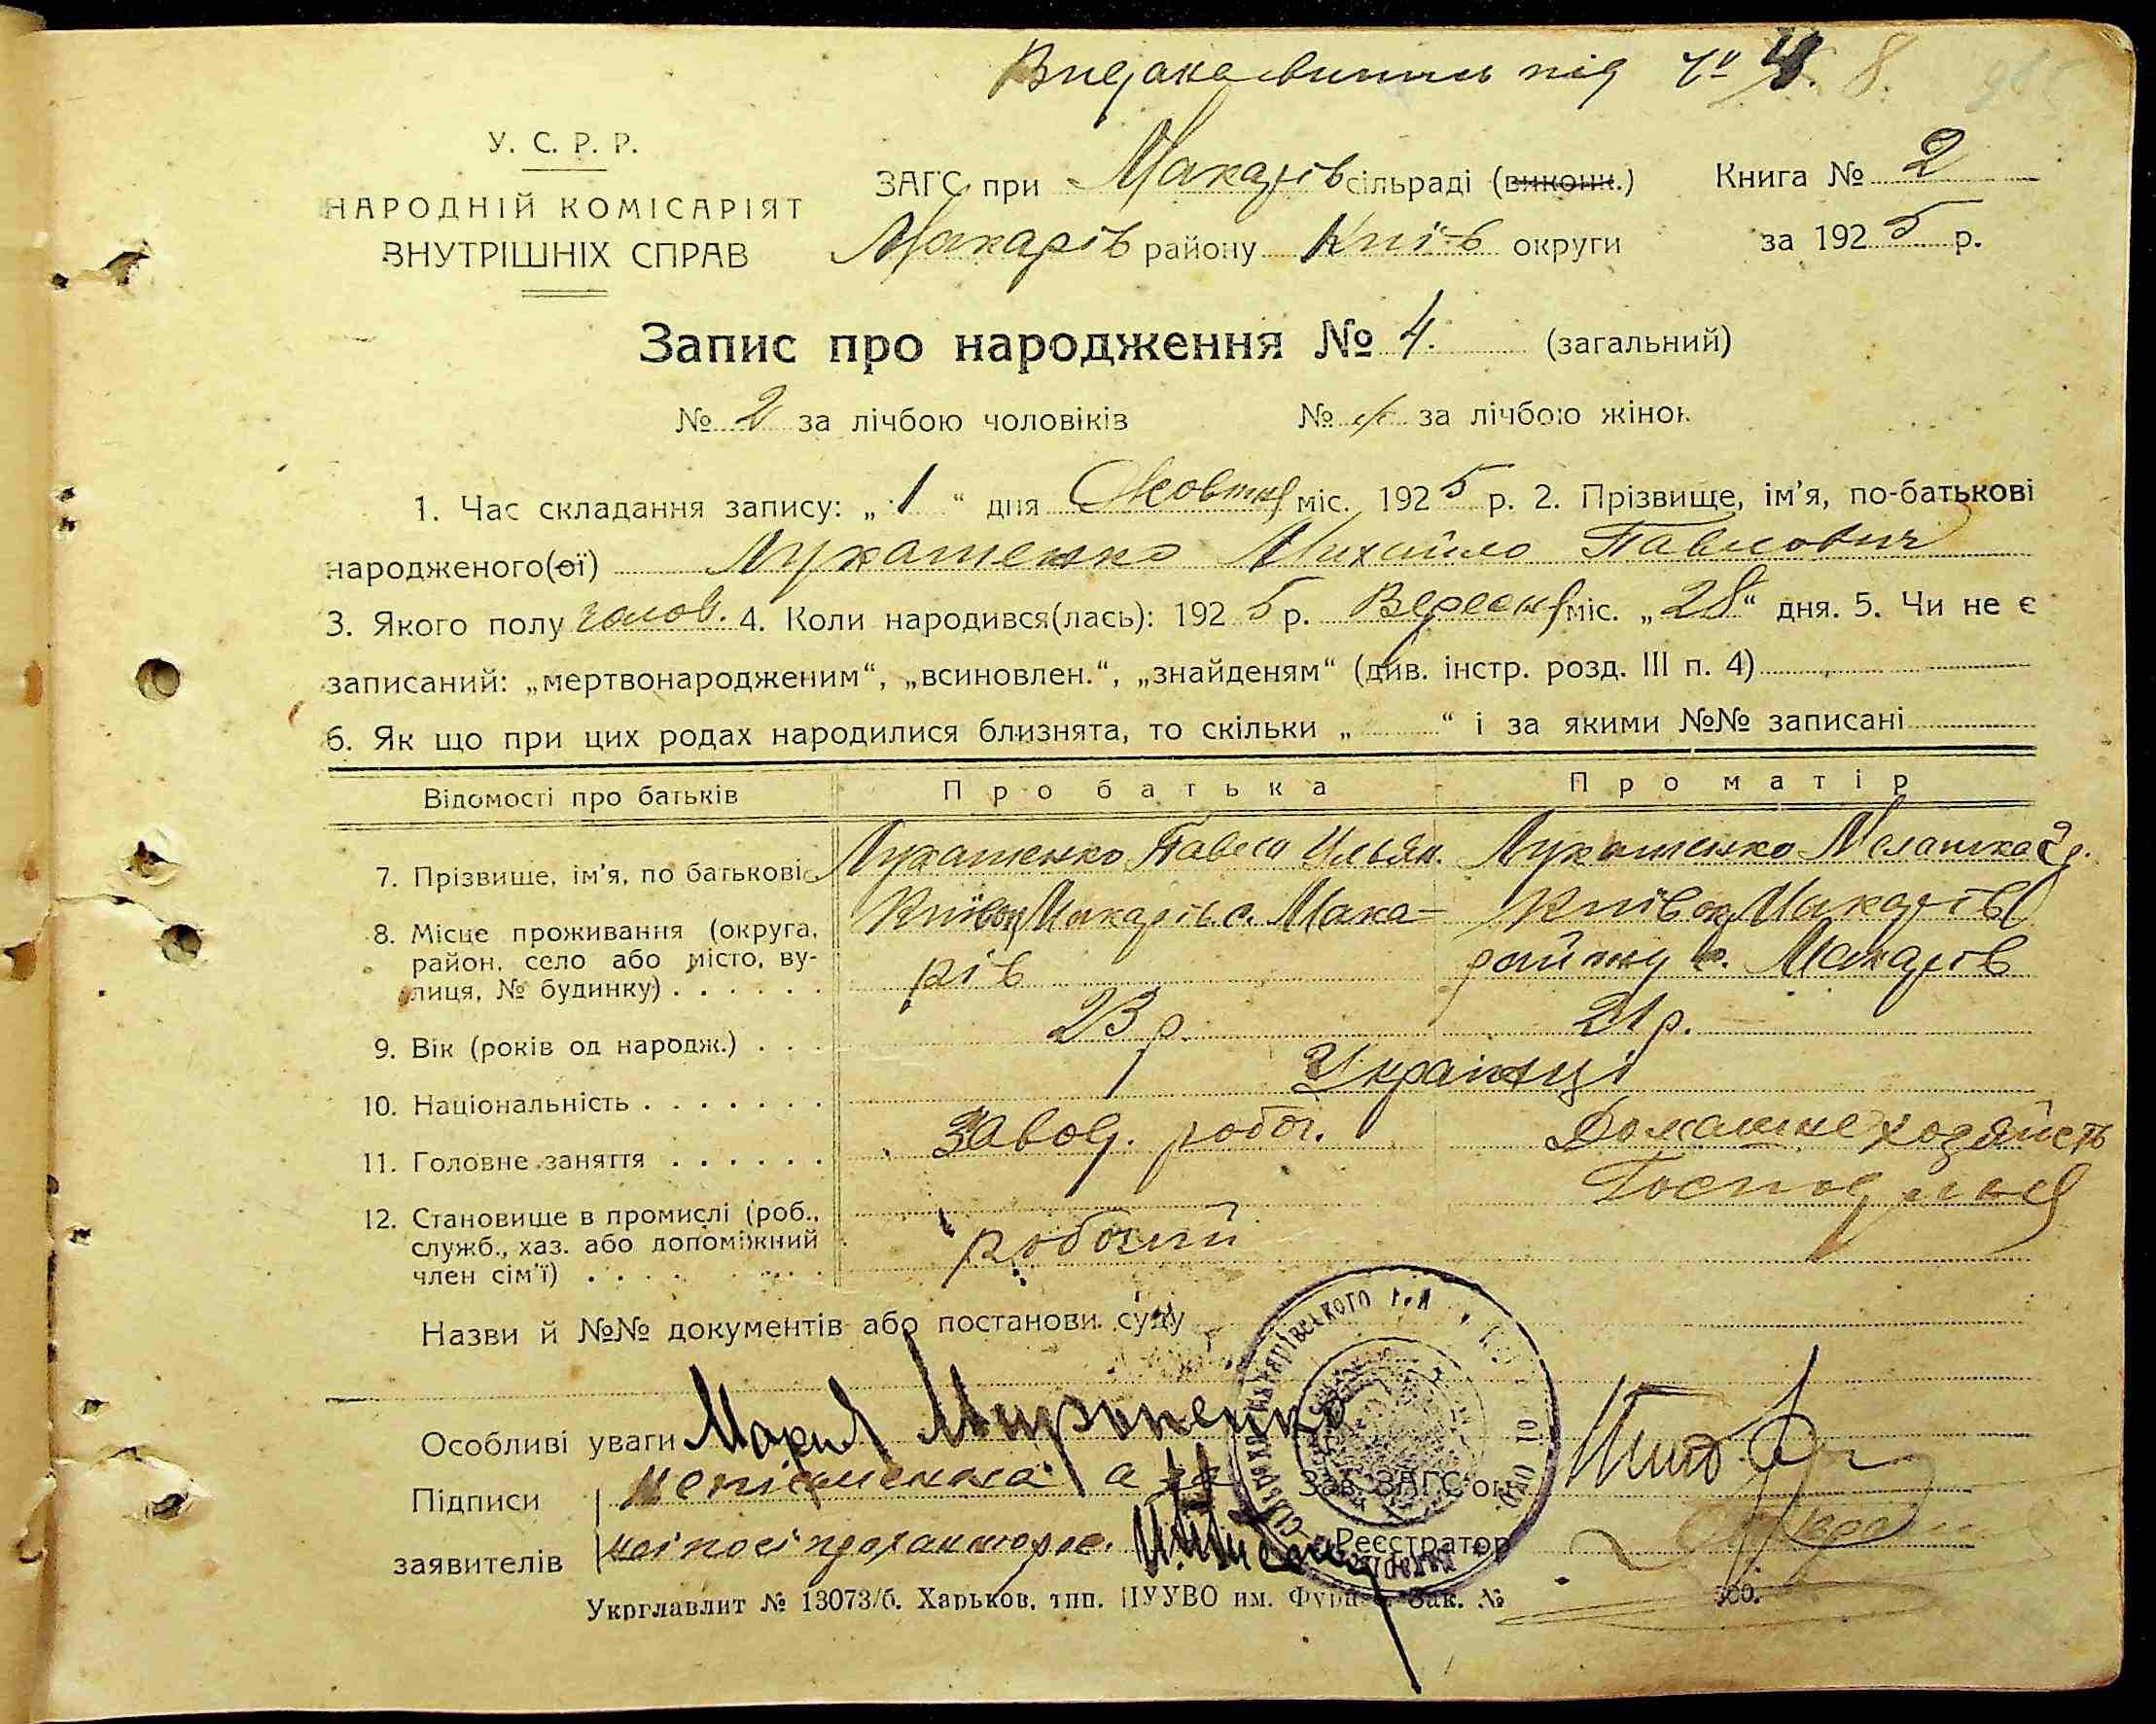 Видано витяг під № 4. 8.
У. С. Р. Р.
НАРОДНІЙ КОМІСАРІЯТ
ВНУТРІШНІХ СПРАВ
ЗАГС при Макарів сільраді (виконк.) Книга № 2
Макарів району Київ округи за 1925 р.
Запис про народження № 4. (загальний)
№ 2 за лічбою чоловіків № за лічбою жінок
1. Час складання запису: „1“ дня Жовтня міс. 1925 р. 2. Прізвище, ім'я, по-батькові
народженого(ої) Лукашенко Михайло Павлович
3. Якого полу чолов. 4. Коли народився(лась): 1925 р. Вересня міс. „28“ дня. 5. Чи не є
записаний: „мертвонародженим“, „всиновлен.“, „знайденям“ (див. інстр. розд. III п. 4)
6. Як що при цих родах народилися близнята, то скільки „ “ і за якими №№ записані
Відомості про батьків Про батька Про матір
7. Прізвище, ім'я, по батькові Лукашенко Павло Ильян. Лукашенко Мелашка
8. Місце проживання (округа, район, село або місто, вулиця, № будинку) Київ ок. Макарів с. Макарів Київ ок. Макарів району с. Макарів
9. Вік (років од народж.) 23 р. 21 р.
10. Національність Українці
11. Головне заняття завод. робоч. Домашне хозяйств
Господиня
12. Становище в промислі (роб., служб., хаз. або допоміжний член сім'ї) робочий
Назви й №№ документів або постанови суду
Особливі уваги Мария Мироненко
Підписи неписьменна а за Зав. ЗАГС'ом
заявителів Реєстратор
Укрглавлит № 13073/б. Харьков, тип. ЦУУВО им. Фрунзе Зак. №